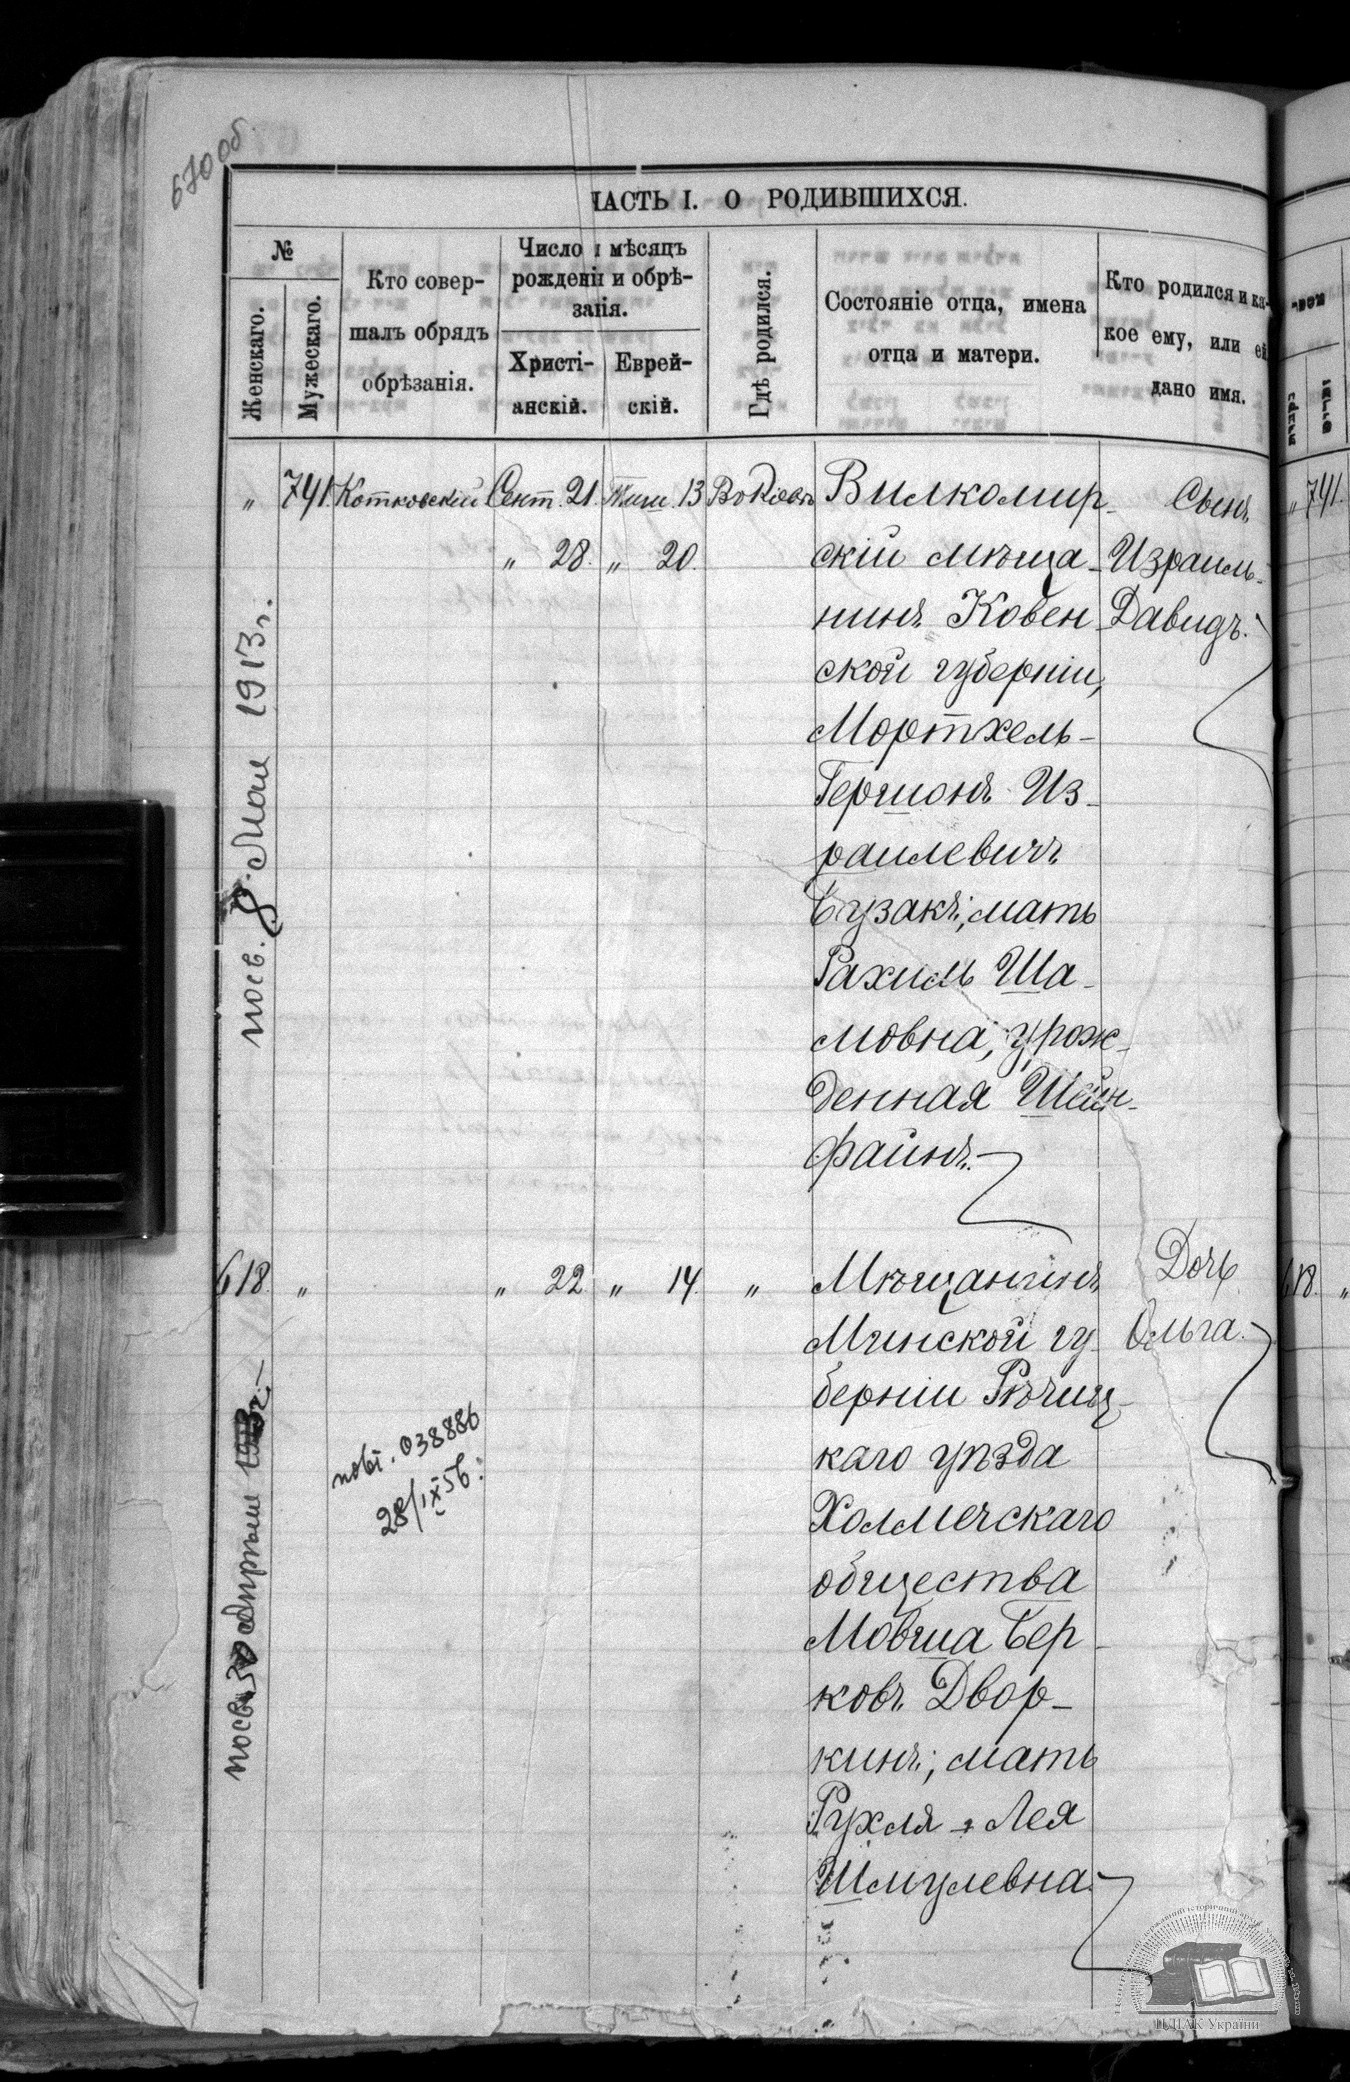 670 об
ЧАСТЬ I. О РОДИВШИХСЯ.
№
Женскаго.
Мужескаго.
Кто совер-
шалъ обрядъ
обрѣзанія.
Число и мѣсяцъ
рожденія и обрѣ-
занія.
Христі-
анскій.
Еврей-
скій.
Гдѣ родился.
Состояніе отца, имена
отца и матери.
Кто родился и ка-
кое ему, или ей
дано имя.
" 741. Котковскій Сент. 21. Тиш. 13 Въ Кіевѣ
" 28. " 20.
Вилкомир-
скій мѣща-
нинъ Ковен-
ской губерніи,
Мортхель-
Гершонъ Из-
раилевичъ
Бузакъ; мать
Рахиль Ша-
мовна, урож-
денная Шейн-
файнъ.
Сынъ
Израиль-
Давидъ.
" 741.
посв. 8 Мая 1913 г.
618. " " 22 " 14. "
Мѣщанинъ
Минской гу-
берніи Рѣчиц-
каго уѣзда
Холмечскаго
общества
Мовша Бер-
ковъ Двор-
кинъ; мать
Рухля-Лея
Шмулевна.
Дочь
Ольга.
618. "
повт. 038886
28/IX 56.
ЦДІАК України